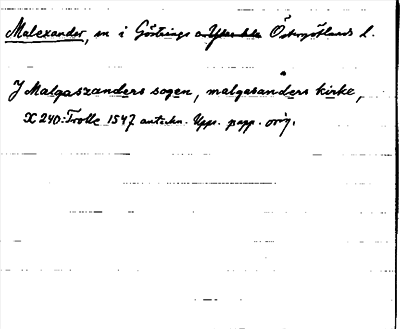 Malexander, sn i Göstrings Östergötlands l.
J Malgaszanders sogen, malgasanders kirke,
X 240: Trolle 1547 antechn. Upps. papp. orig.